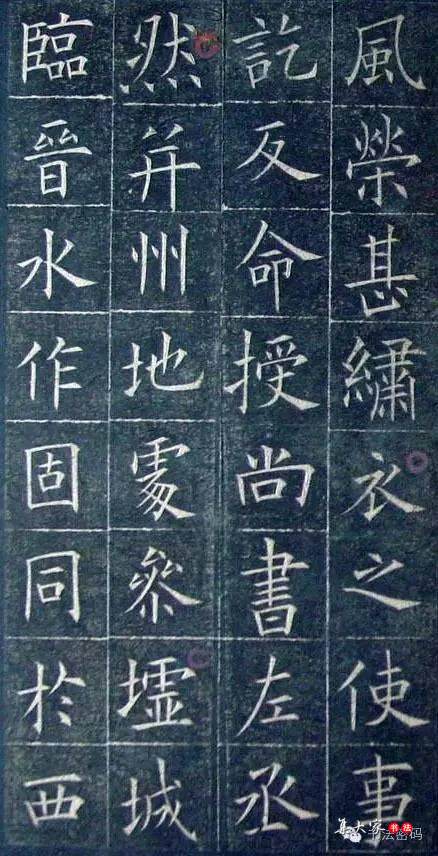 風榮甚繡衣之使事
訖反命授尚書左丞
然并州地處參墟城
臨晉水作固同於西
集大家书法
书法密码